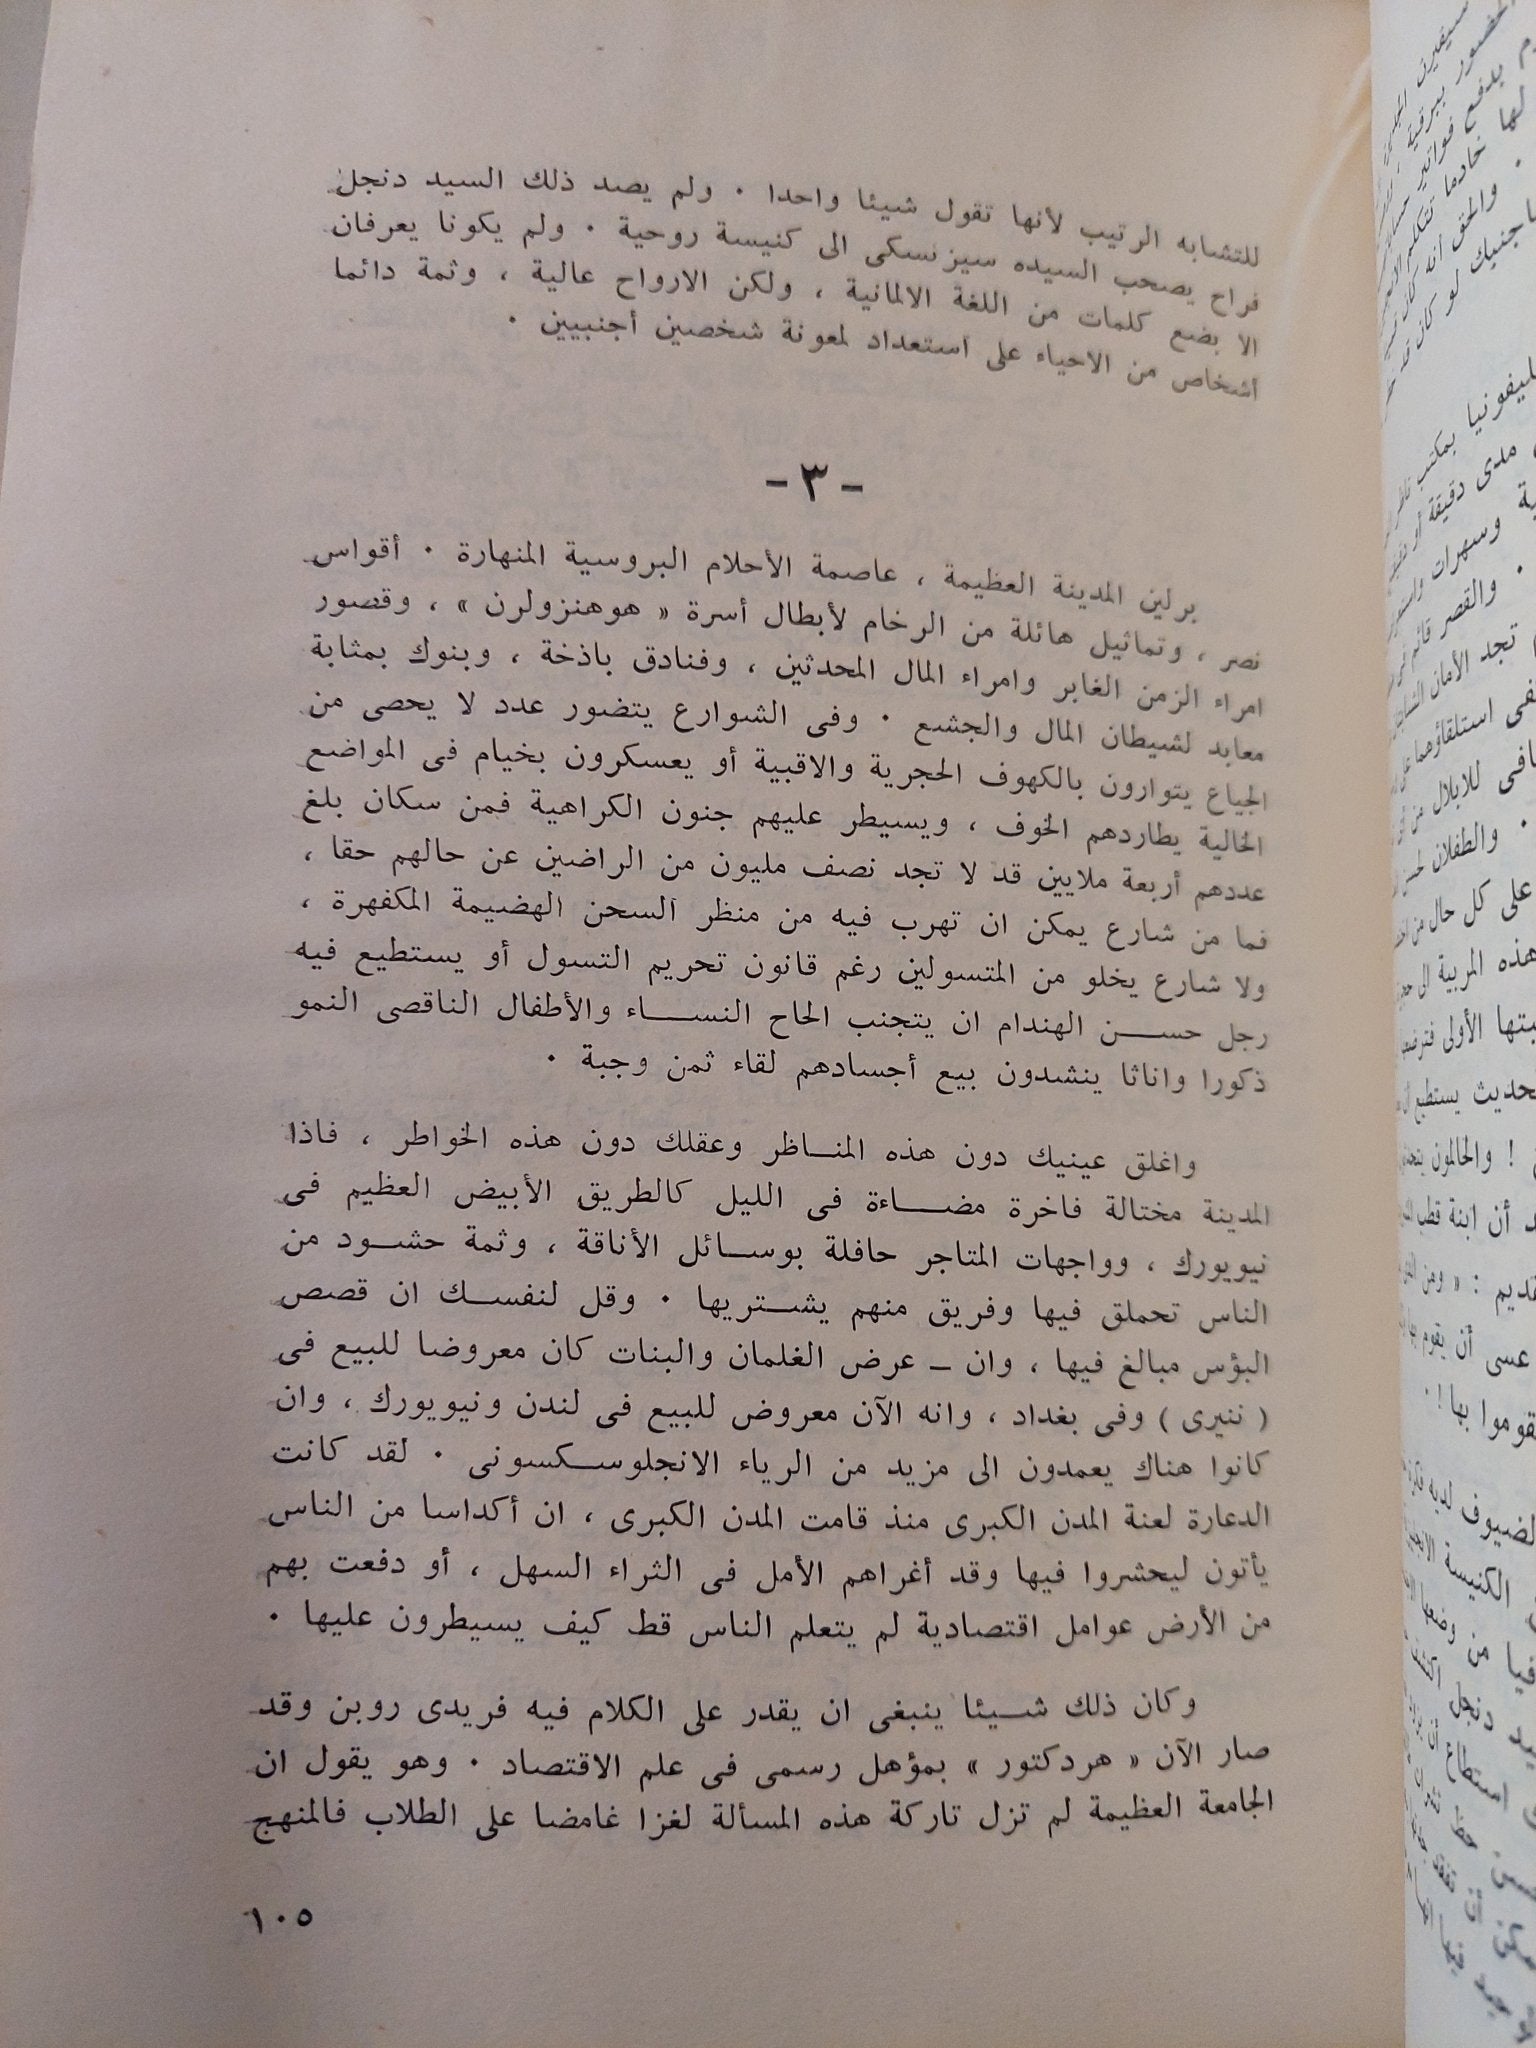 للتشابه الرتيب لأنها تقول شيئا واحدا ٠ ولم يصد ذلك السيد دنجل
فراح يصحب السيده سيزنسكى الى كنيسة روحية ٠ ولم يكونا يعرفان
الا بضع كلمات من اللغة الالمانية ، ولكن الارواح عالية ، وثمة دائما
أشخاص من الاحياء على استعداد لمعونة شخصين أجنبيين ٠
- ٣ -
برلين المدينة العظيمة ، عاصمة الأحلام البروسية المنهارة ٠ أقواس
نصر ، وتماثيل هائلة من الرخام لأبطال أسرة « هوهنزولرن » ، وقصور
امراء الزمن الغابر وامراء المال المحدثين ، وفنادق باذخة ، وبنوك بمثابة
معابد لشيطان المال والجشع ٠ وفى الشوارع يتضور عدد لا يحصى من
الجياع يتوارون بالكهوف الحجرية والاقبية أو يعسكرون بخيام فى المواضع
الخالية يطاردهم الخوف ، ويسيطر عليهم جنون الكراهية فمن سكان بلغ
عددهم أربعة ملايين قد لا تجد نصف مليون من الراضين عن حالهم حقا ،
فما من شارع يمكن ان تهرب فيه من منظر السحن الهضيمة المكفهرة ،
ولا شارع يخلو من المتسولين رغم قانون تحريم التسول أو يستطيع فيه
رجل حســـن الهندام ان يتجنب الحاح النســـاء والأطفال الناقصى النمو
ذكورا واناثا ينشدون بيع أجسادهم لقاء ثمن وجبة ٠
واغلق عينيك دون هذه المنــاظر وعقلك دون هذه الخواطر ، فاذا
المدينة مختالة فاخرة مضـــاءة فى الليل كالطريق الأبيض العظيم فى
نيويورك ، وواجهات المتاجر حافلة بوســائل الأناقة ، وثمة حشــود من
الناس تحملق فيها وفريق منهم يشــتريها ٠ وقل لنفســك ان قصص
البؤس مبالغ فيها ، وان ــ عرض الغلمان والبنات كان معروضا للبيع فى
( ننيرى ) وفى بغداد ، وانه الآن معروض للبيع فى لندن ونيويورك ، وان
كانوا هناك يعمدون الى مزيد من الرياء الانجلوســكسونى ٠ لقد كانت
الدعارة لعنة المدن الكبرى منذ قامت المدن الكبرى ، ان أكداسا من الناس
يأتون ليحشروا فيها وقد أغراهم الأمل فى الثراء السهل ، أو دفعت بهم
من الأرض عوامل اقتصادية لم يتعلم الناس قط كيف يسيطرون عليها ٠
وكان ذلك شــيئا ينبغى ان يقدر على الكلام فيه فريدى روبن وقد
صار الآن « هردكتور » بمؤهل رسمى فى علم الاقتصاد ٠ وهو يقول ان
الجامعة العظيمة لم تزل تاركة هذه المسألة لغزا غامضا على الطلاب فالمنهج
١٠٥